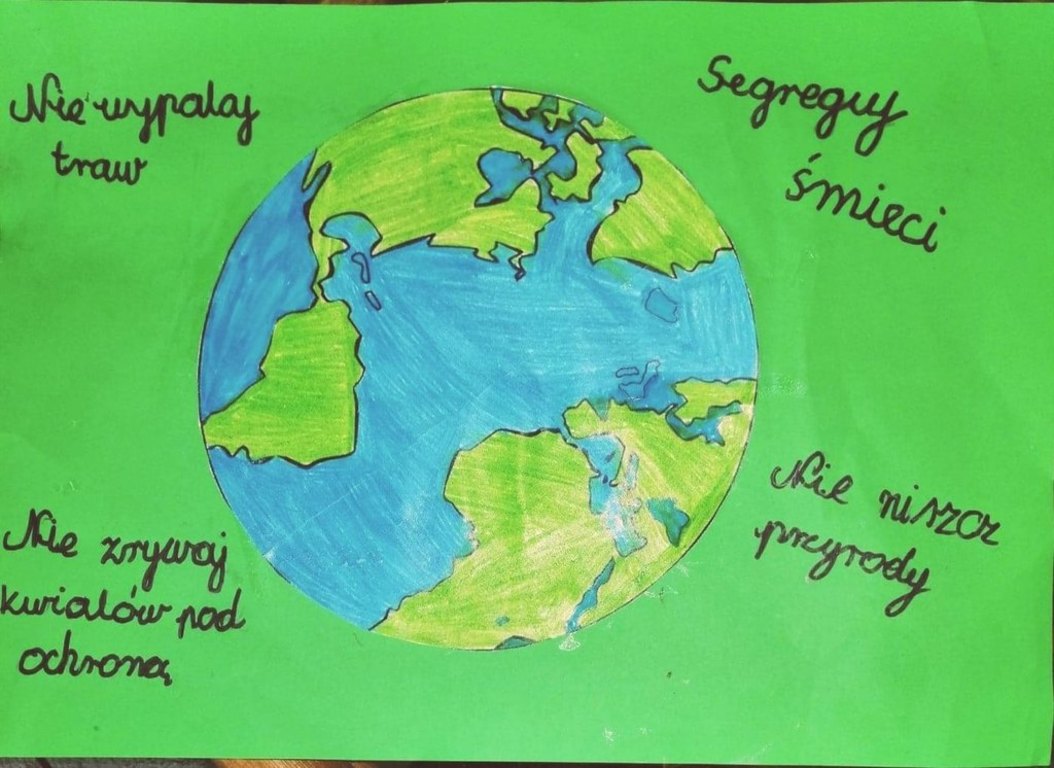 Nie wypalaj
traw
Segreguj
śmieci
Nie zrywaj
kwiatów pod
ochroną
Nie niszcz
przyrody